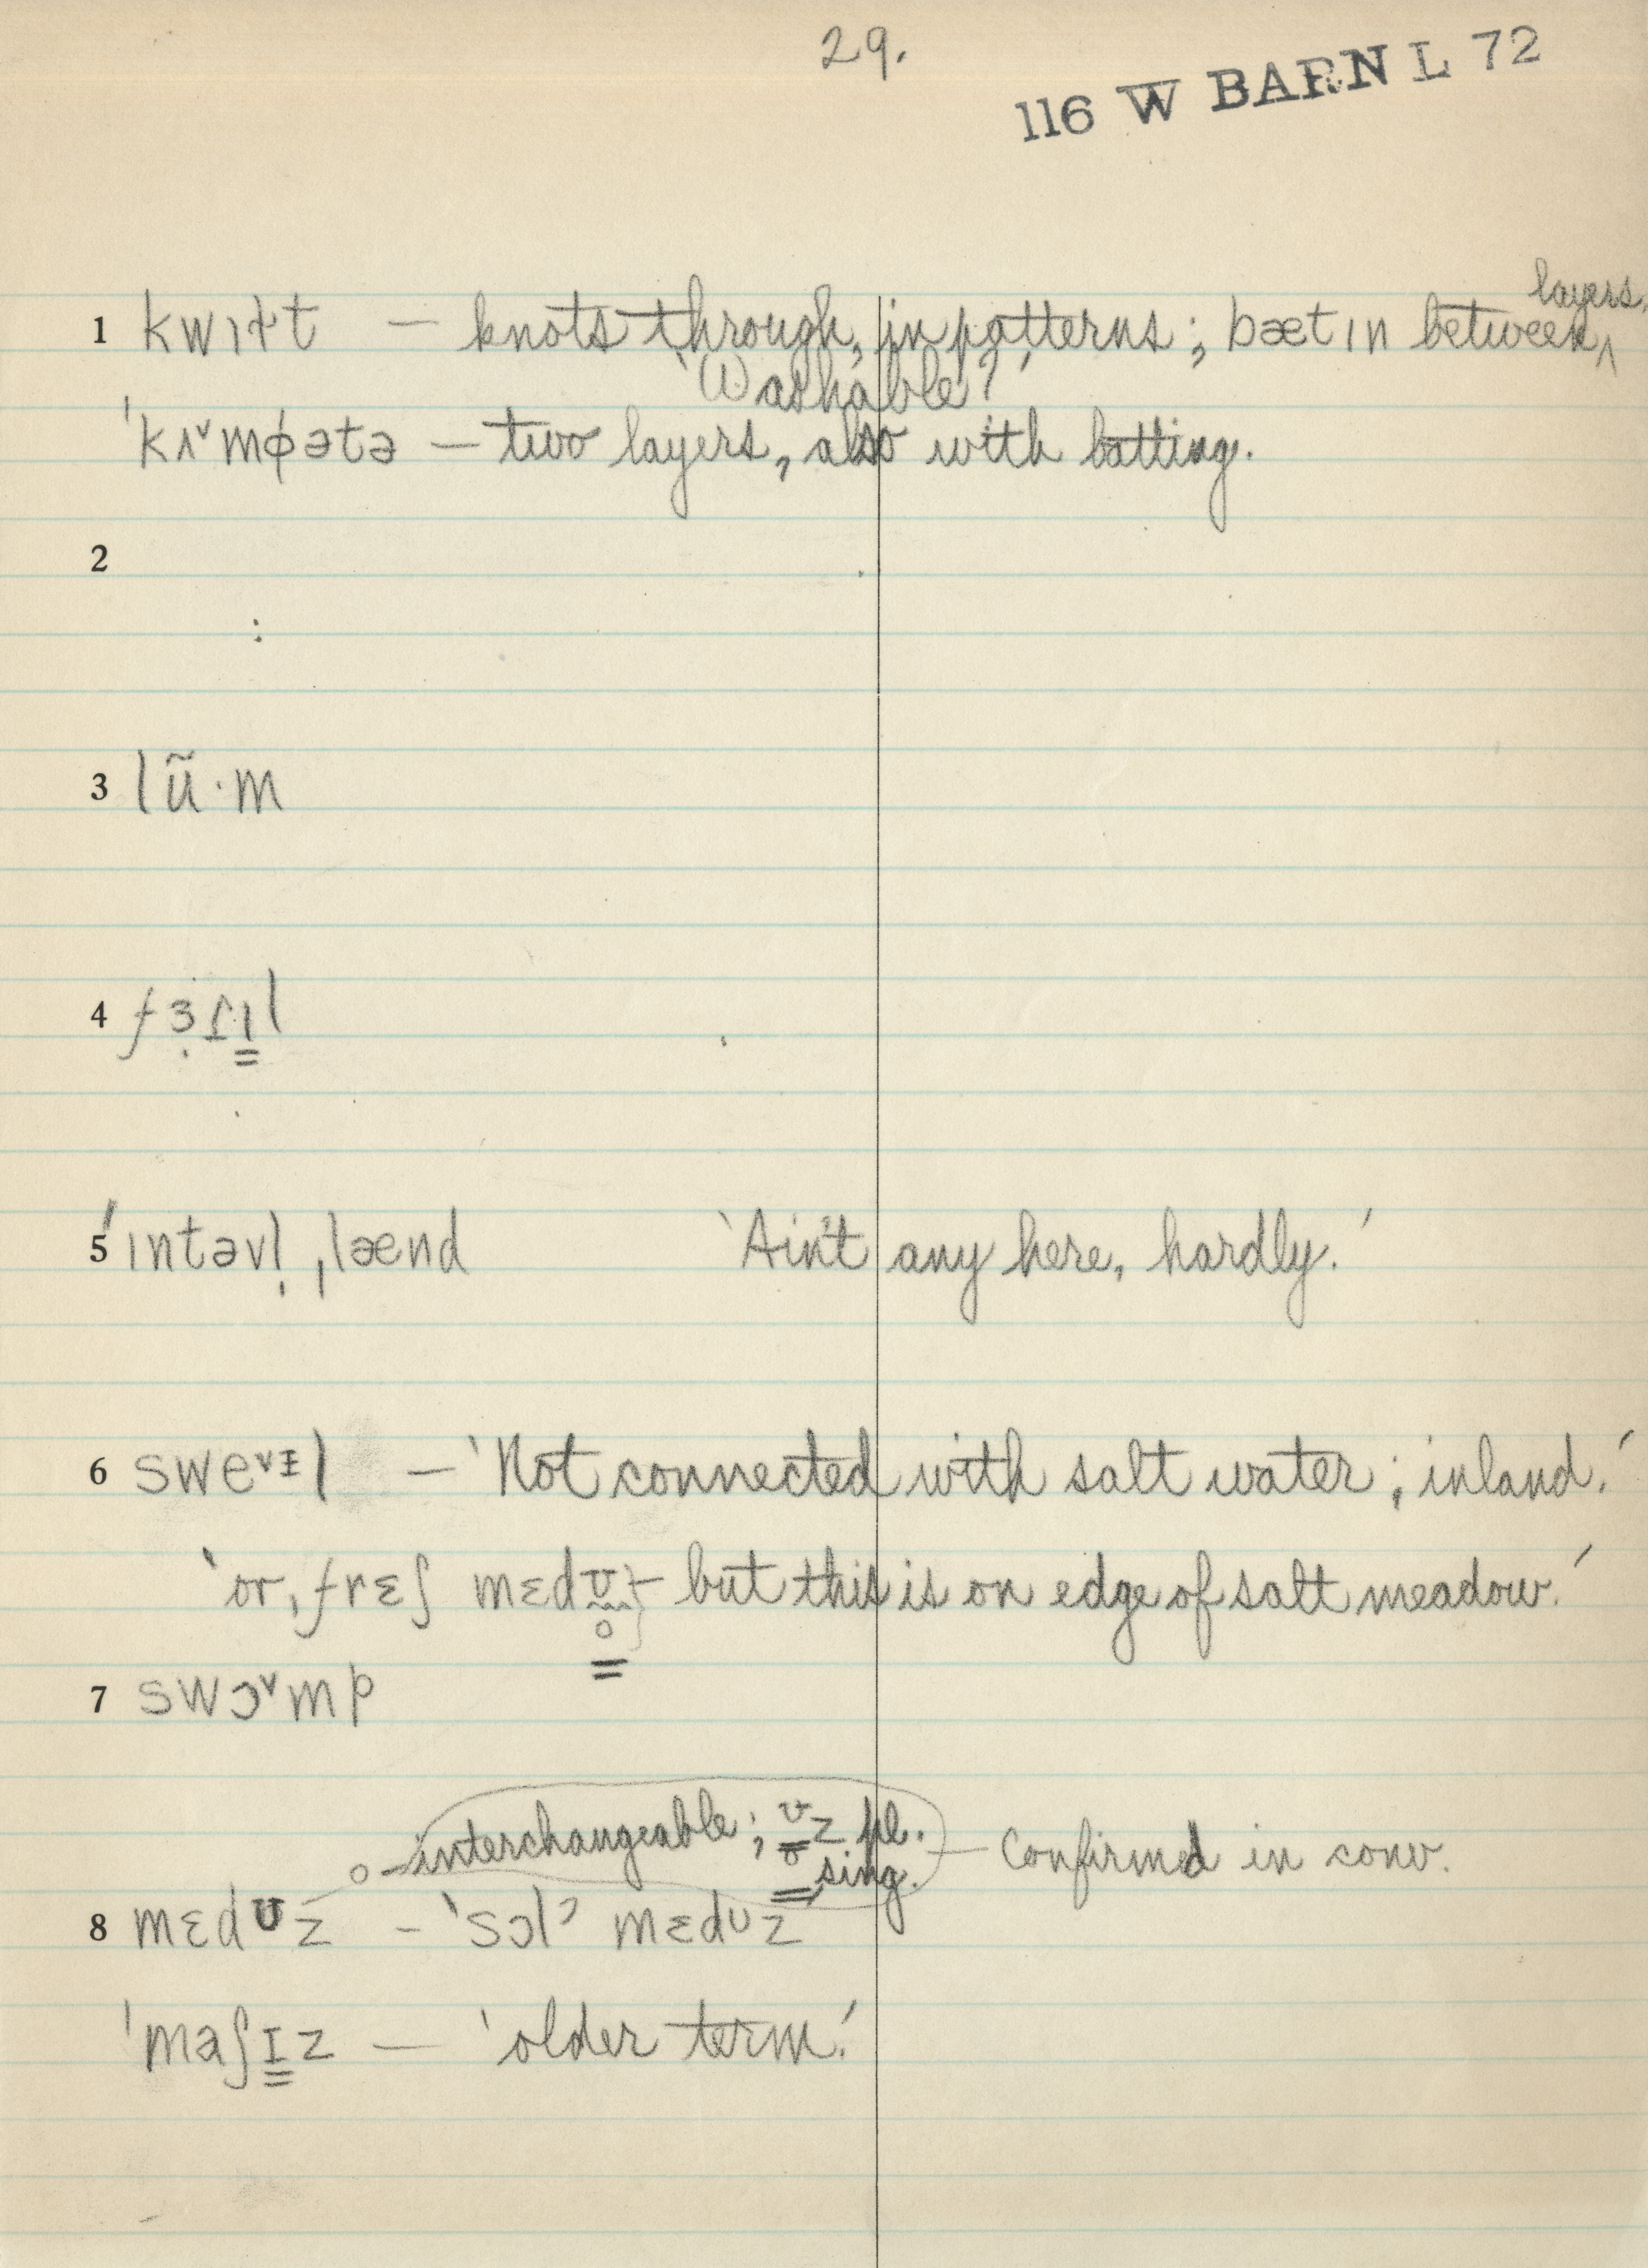 29.
116 W BARN L 72
layers.
1 kwɪɫt — knots through, in patterns; bætɪn between ^
'Washable?'
ˈkʌ˅mɸətə — two layers, also with batting.
2
3 lũ·m
4
5 ˈɪntəvl̩ ˌlænd 'Ain't any here, hardly.'
6 swe˅ɪl — 'Not connected with salt water; inland.'
'or, frɛʃ mɛdʊ} — but this is on edge of salt meadow.'
o
7 swɔ˅mp
o — interchangeable; ʊz pl. — Confirmed in conv.
o sing.
8 mɛdʊz - 'sɔlʔ mɛdʊz
ˈmaʃɪz — 'older term.'